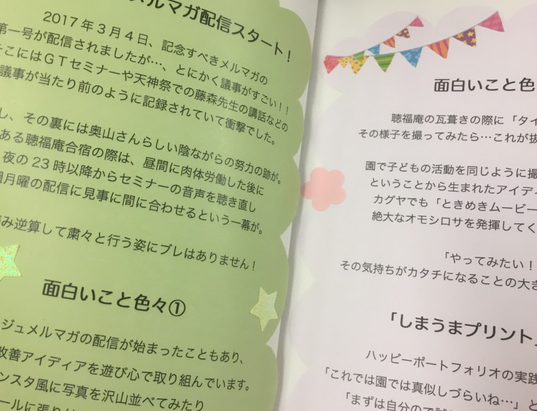 メルマガ配信スタート！
2017年3月4日、記念すべきメルマガの
第一号が配信されましたが…、とにかく議事がすごい！！
そこにはＧＴセミナーや天神祭での藤森先生の講話などの
議事が当たり前のように記録されていて衝撃でした。
し、その裏には奥山さんらしい陰ながらの努力の跡が。
ある聴福庵合宿の際は、昼間に肉体労働した後に
夜の23時以降からセミナーの音声を聴き直し
月曜の配信に見事に間に合わせるという一幕が。
み逆算して粛々と行う姿にブレはありません！
面白いこと色々①
ジュメルマガの配信が始まったこともあり、
改善アイディアを遊び心で取り組んでいます。
ンスタ風に写真を沢山並べてみたり
面白いこと色
聴福庵の瓦葺きの際に「タイ
その様子を撮ってみたら…これが抜
園で子どもの活動を同じように撮
ということから生まれたアイディ
カグヤでも「ときめきムービー
絶大なオモシロサを発揮してく
「やってみたい！
その気持ちがカタチになることの大き
「しまうまプリント
ハッピーポートフォリオの実践
「これでは園では真似しづらいね…」と
「まずは自分の